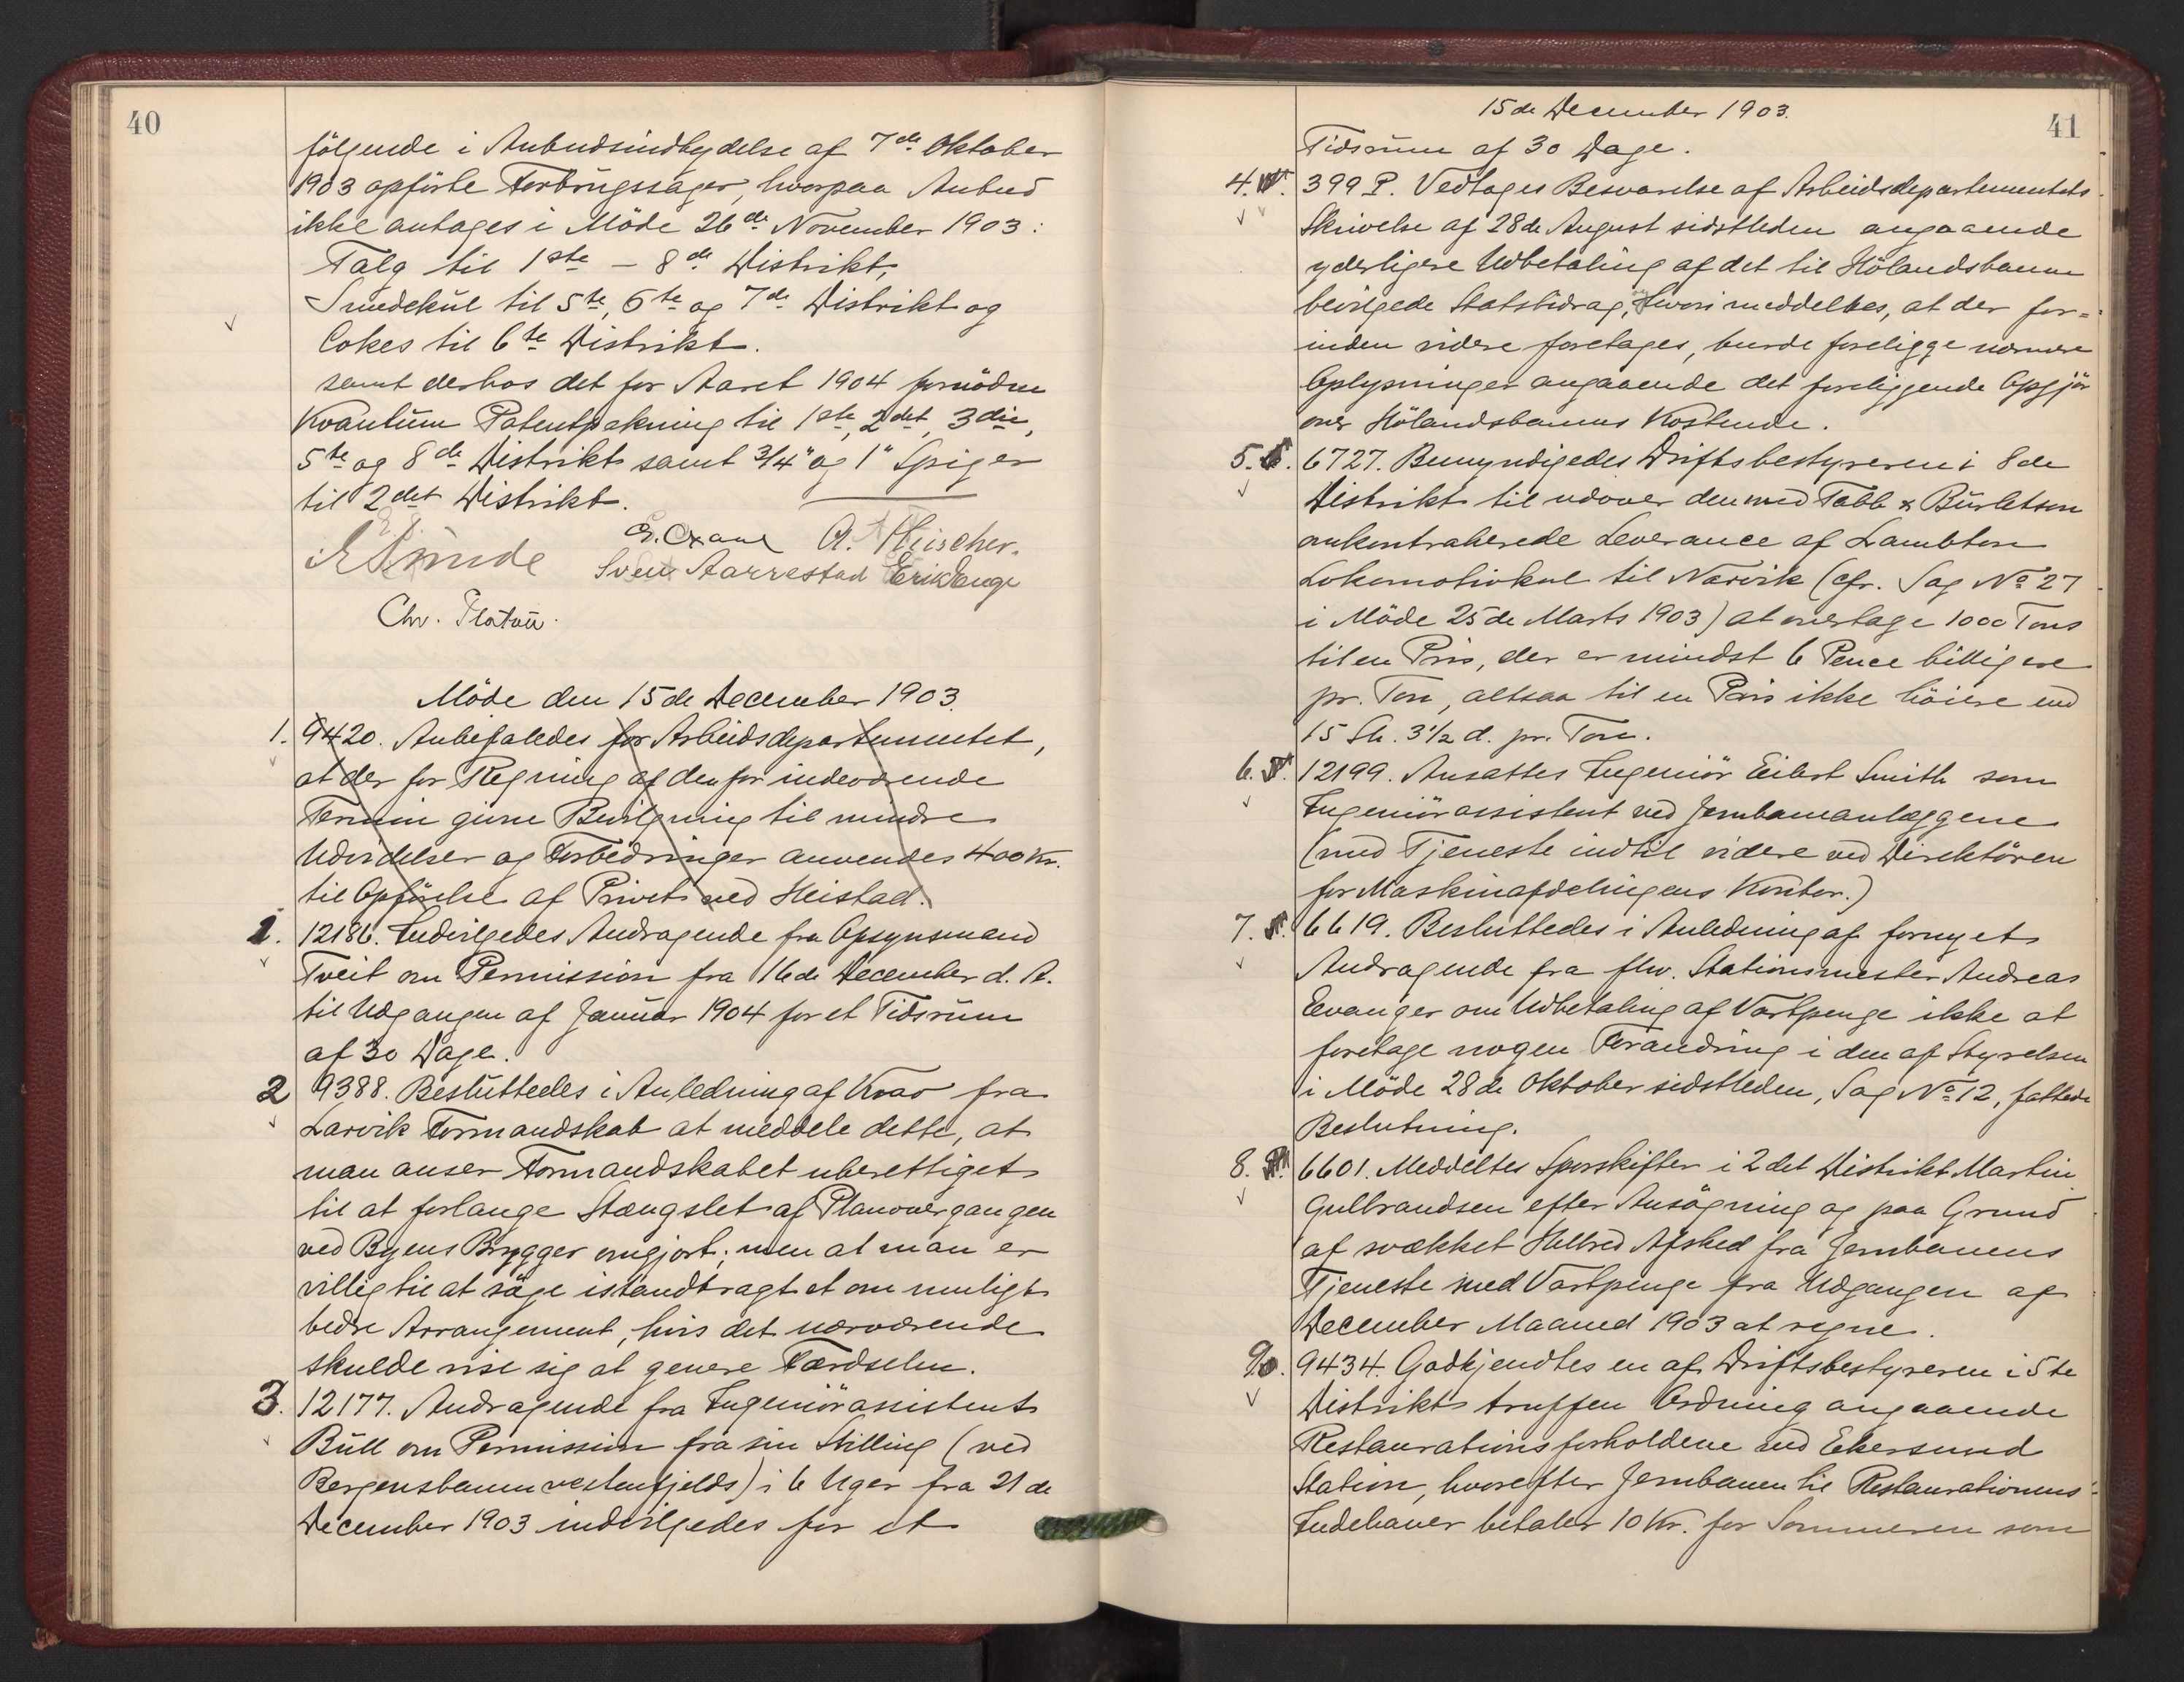 40
følgende i Anbudsindbydelse af 7de Oktober
1903 opførte Forbrugssager, hvorpaa Anbud
ikke antages i Møde 26de November 1903:
Talg til 1ste – 8de Distrikt,
Smedekul til 5te, 6te og 7de Distrikt og
Cokes til 6te Distrikt.
samt derhos det for Aaret 1904 fornødne
Kvantum Patentpakning til 1ste, 2det, 3die,
5te og 8de Distrikt samt 3/4" og 1" Spiger
til 2det Distrikt.
Sven Aarrestad
Chr. Platou.
Møde den 15de December 1903.
1. 9420. Anbefaledes for Arbeidsdepartementet,
at der for Regning af den for indeværende
Termin givne Bevilgning til mindre
Udvidelser og Forbedringer anvendes 400 Kr.
til Opførelse af Privet ved Heistad.
1. 12186. Indvilgedes Andragende fra Opsynsmand
Tveit om Permission fra 16de December d. A.
til Udgangen af Januar 1904 for et Tidsrum
af 30 Dage.
2 9388. Besluttedes i Anledning af Krav fra
Larvik Formandskab at meddele dette, at
man anser Formandskabet uberettiget
til at forlange Stængslet af Planovergangen
ved Byens Brygger omgjort; men at man er
villig til at søge istandbragt et om muligt
bedre Arrangement, hvis det nærværende
skulde vise sig at genere Færdselen.
3. 12177. Andragende fra Ingeniørassistent
Bull om Permission fra sin Stilling (ved
Bergensbanen vestenfjelds) i 6 Uger fra 21de
December 1903 indvilgedes for et
15de December 1903.
41
Tidsrum af 30 Dage.
4. 399 P. Vedtages Besvarelse af Arbeidsdepartementets
Skrivelse af 28de August sidstleden angaaende
yderligere Udbetaling af det til Hølandsbanen
bevilgede Statsbidrag, hvori meddeltes, at der for-
inden videre foretages, burde foreligge nærmere
Oplysninger angaaende det foreliggende Opgjør
over Hølandsbanens Kostende.
5. 6727. Bemyndigedes Driftsbestyreren i 8de
Distrikt til udover den med Tabb & Burletson
ankontraherede Leverance af Lambton
Lokomotivkul til Narvik (cfr. Sag No 27
i Møde 25de Marts 1903) at overtage 1000 Tons
til en Pris, der er mindst 6 Pence billigere
pr. Ton, altsaa til en Pris ikke høiere end
15 Sh. 3 1/2 d. pr. Ton.
6. 12199. Ansattes Ingeniør Eilert Smith som
Ingeniørassistent ved Jernbaneanlæggene
(med Tjeneste indtil videre ved Direktøren
for Maskinafdelingens Kontor.)
7. 6619. Besluttedes i Anledning af fornyet
Andragende fra fhv. Stationsmester Andreas
Evanger om Udbetaling af Vartpenge ikke at
foretage nogen Forandring i den af Styrelsen
i Møde 28de Oktober sidstleden, Sag No 12, fattede
Beslutning.
8. 6601. Meddeltes Sporskifter i 2det Distrikt Martin
Gulbrandsen efter Ansøgning og paa Grund
af svækket Helbred Afsked fra Jernbanens
Tjeneste med Vartpenge fra Udgangen af
December Maaned 1903 at regne.
9. 9434. Godkjendtes en af Driftsbestyreren i 5te
Distrikt truffen Ordning angaaende
Restaurationsforholdene ved Ekersund
Station, hvorefter Jernbanen til Restaurationens
Indehaver betaler 10 Kr. for Sommeren som